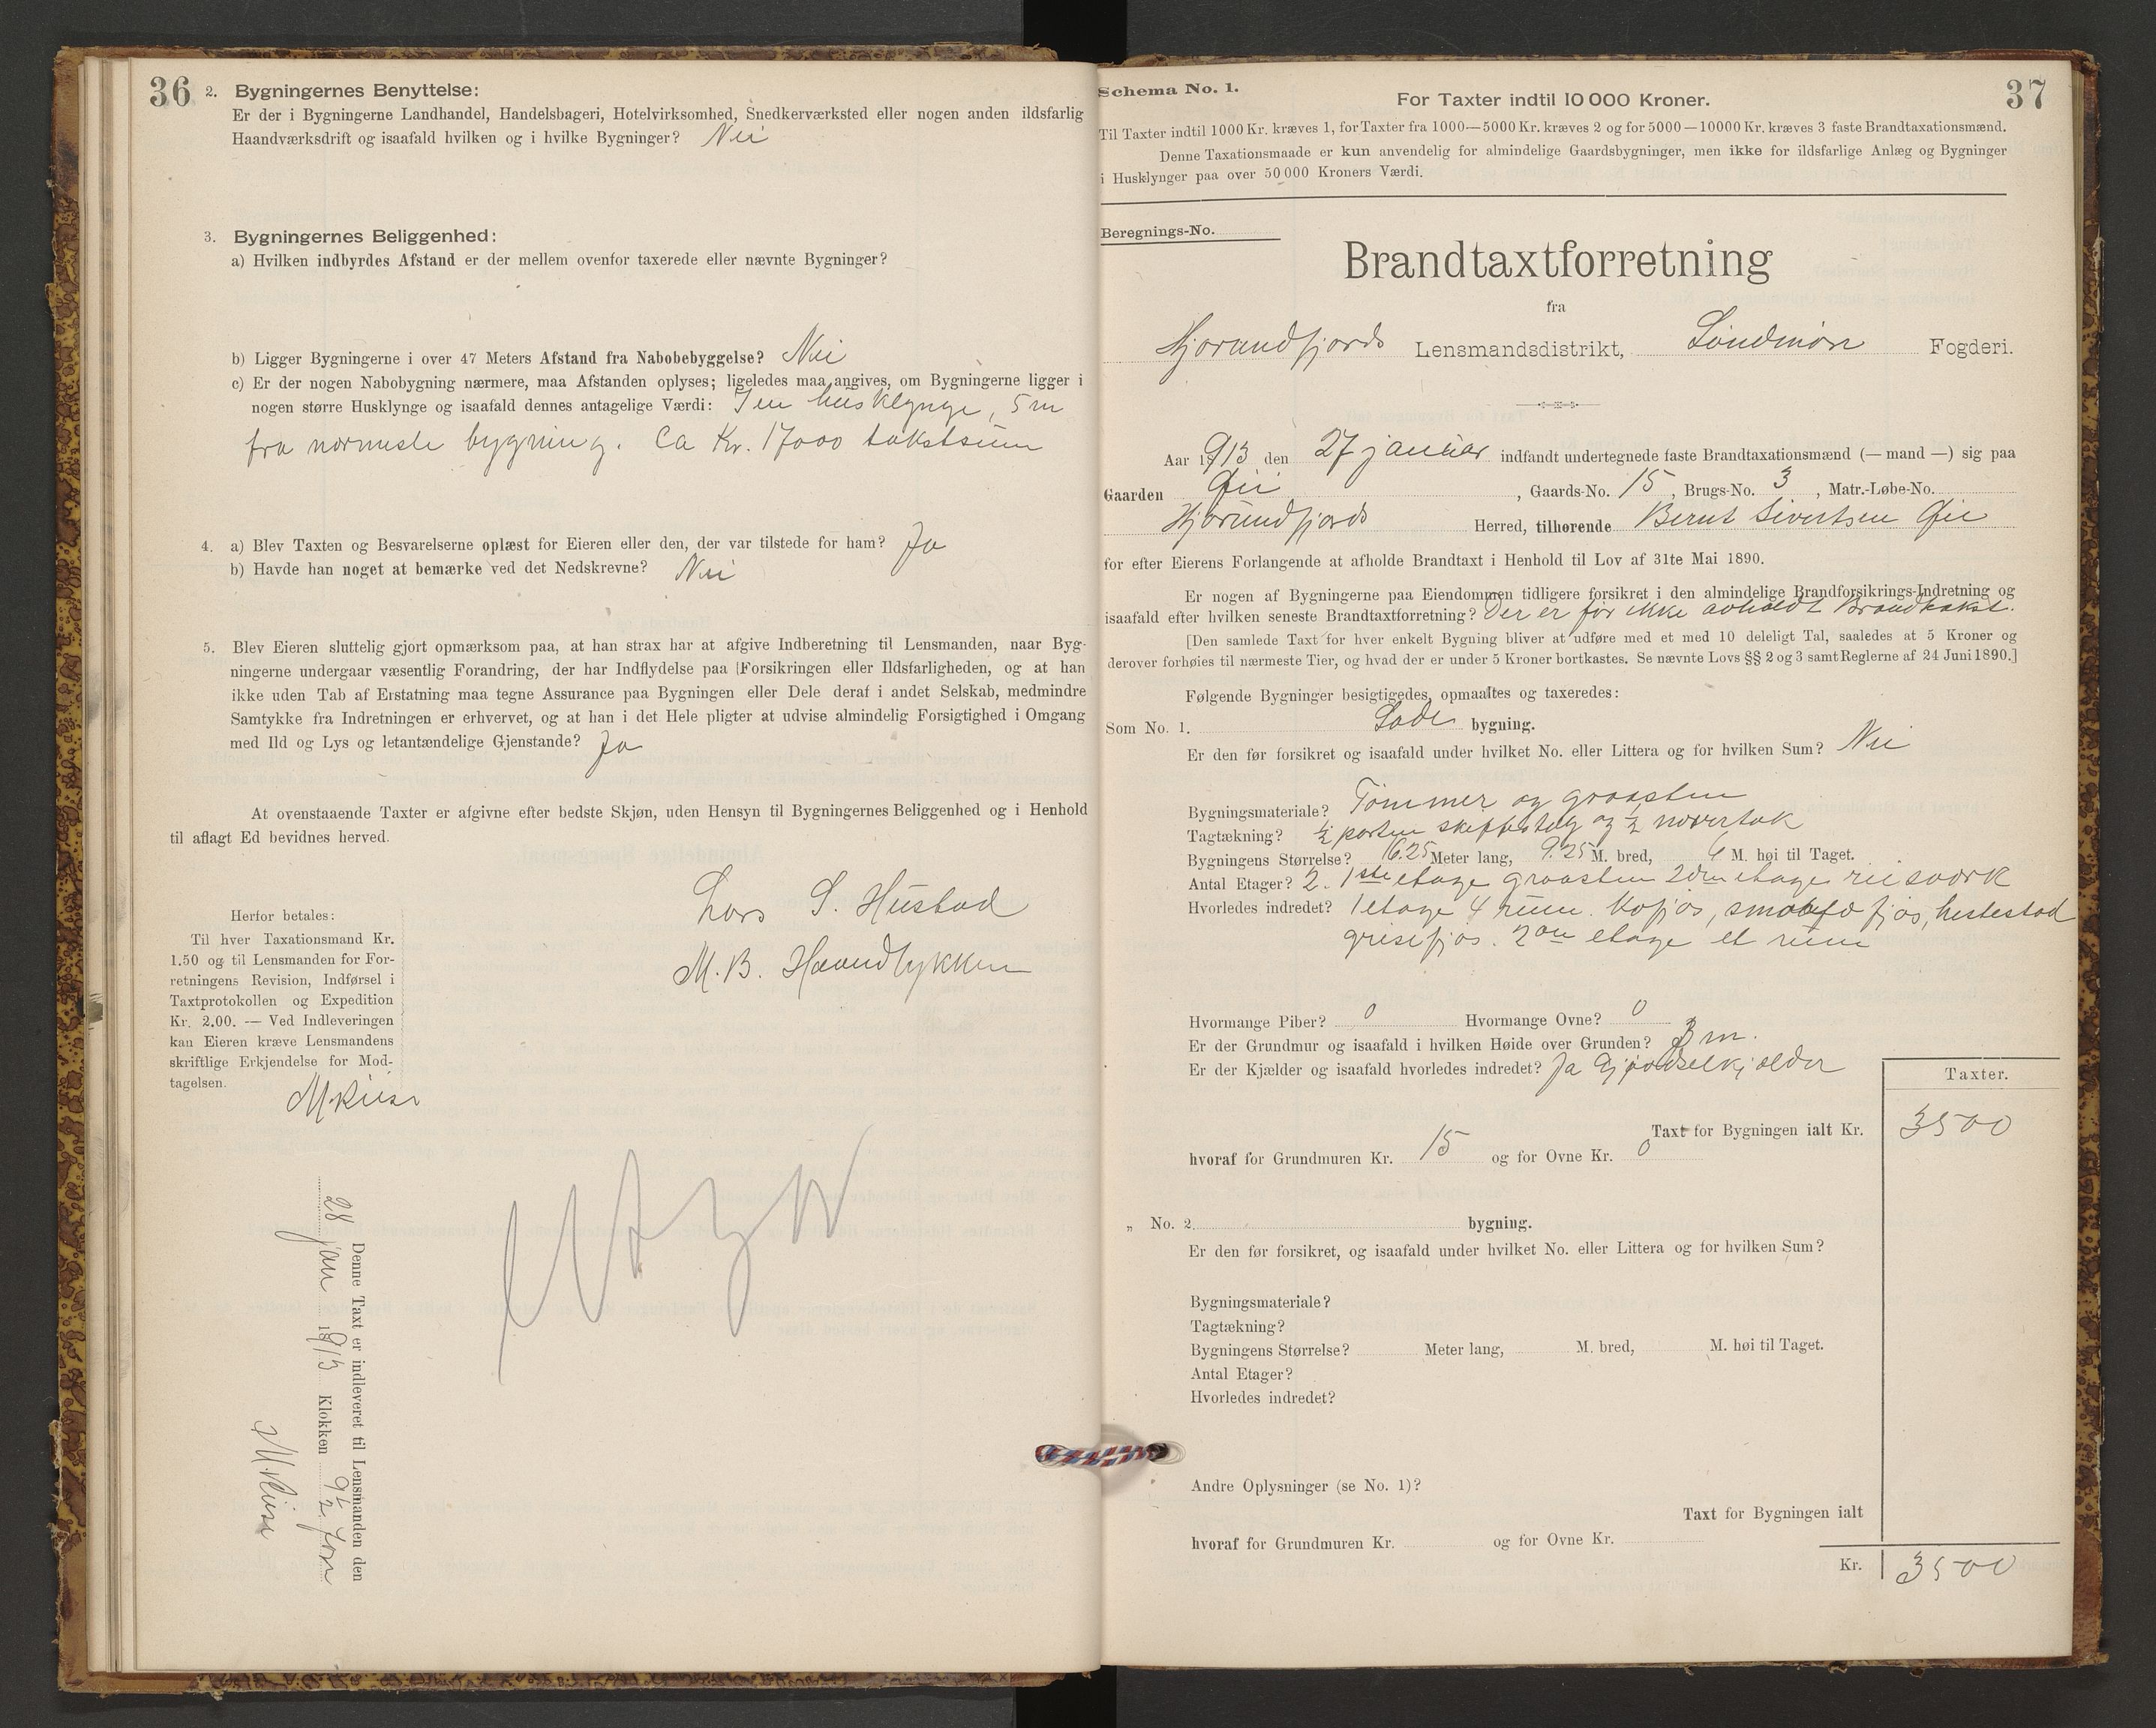 36
2. Bygningernes Benyttelse:
Er der i Bygningerne Landhandel, Handelsbageri, Hotelvirksomhed, Snedkerværksted eller nogen anden ildsfarlig
Haandværksdrift og isaafald hvilken og i hvilke Bygninger? Nei
3. Bygningernes Beliggenhed:
a) Hvilken indbyrdes Afstand er der mellem ovenfor taxerede eller nævnte Bygninger?
b) Ligger Bygningerne i over 47 Meters Afstand fra Nabobebyggelse? Nei
c) Er der nogen Nabobygning nærmere, maa Afstanden oplyses; ligeledes maa angives, om Bygningerne ligger i
nogen større Husklynge og isaafald dennes antagelige Værdi: I en husklynge, 5 m
fra nærmeste bygning. Ca Kr. 17000 takstsum
4. a) Blev Taxten og Besvarelserne oplæst for Eieren eller den, der var tilstede for ham? Ja
b) Havde han noget at bemærke ved det Nedskrevne? Nei
5. Blev Eieren sluttelig gjort opmærksom paa, at han strax har at afgive Indberetning til Lensmanden, naar Byg-
ningerne undergaar væsentlig Forandring, der har Indflydelse paa Forsikringen eller Ildsfarligheden, og at han
ikke uden Tab af Erstatning maa tegne Assurance paa Bygningen eller Dele deraf i andet Selskab, medmindre
Samtykke fra Indretningen er erhvervet, og at han i det Hele pligter at udvise almindelig Forsigtighed i Omgang
med Ild og Lys og letantændelige Gjenstande? Ja
At ovenstaaende Taxter er afgivne efter bedste Skjøn, uden Hensyn til Bygningernes Beliggenhed og i Henhold
til aflagt Ed bevidnes herved.
Lars S. Hustad
M. B. Haandlykken
Herfor betales:
Til hver Taxationsmand Kr.
1.50 og til Lensmanden for For-
retningens Revision, Indførsel i
Taxtprotokollen og Expedition
Kr. 2.00. — Ved Indleveringen
kan Eieren kræve Lensmandens
skriftlige Erkjendelse for Mod-
tagelsen.
M. Riise
Denne Taxt er indleveret til Lensmanden den
28 jan 1913 Klokken 9 1/2 form
M. Riise
37
Schema No. 1.
For Taxter indtil 10 000 Kroner.
Til Taxter indtil 1000 Kr. kræves 1, for Taxter fra 1000—5000 Kr. kræves 2 og for 5000—10000 Kr. kræves 3 faste Brandtaxationsmænd.
Denne Taxationsmaade er kun anvendelig for almindelige Gaardsbygninger, men ikke for ildsfarlige Anlæg og Bygninger
i Husklynger paa over 50 000 Kroners Værdi.
Beregnings-No.
Brandtaxtforretning
fra
Hjørundfjords Lensmandsdistrikt, Søndmøre Fogderi.
Aar 1913 den 27 januar indfandt undertegnede faste Brandtaxationsmænd (— mand —) sig paa
Gaarden Øie, Gaards-No. 15, Brugs-No. 3, Matr.-Løbe-No.
Hjørundfjords Herred, tilhørende Bernt Sivertsen Øie
for efter Eierens Forlangende at afholde Brandtaxt i Henhold til Lov af 31te Mai 1890.
Er nogen af Bygningerne paa Eiendommen tidligere forsikret i den almindelige Brandforsikrings-Indretning og
isaafald efter hvilken seneste Brandtaxtforretning? Der er før ikke avholdt Brandtakst.
[Den samlede Taxt for hver enkelt Bygning bliver at udføre med et med 10 deleligt Tal, saaledes at 5 Kroner og
derover forhøies til nærmeste Tier, og hvad der er under 5 Kroner bortkastes. Se nævnte Lovs §§ 2 og 3 samt Reglerne af 24 Juni 1890.]
Følgende Bygninger besigtigedes, opmaaltes og taxeredes:
Som No. 1. Lade bygning.
Er den før forsikret og isaafald under hvilket No. eller Littera og for hvilken Sum? Nei
Bygningsmateriale? Tømmer og graasten
Tagtækning? 1/2 parten skeffertag og 1/2 nævertak
Bygningens Størrelse? 16.25 Meter lang, 9.25 M. bred, 6 M. høi til Taget.
Antal Etager? 2. 1ste etage graasten 2den etage reisværk
Hvorledes indredet? 1 etage 4 rum. Kofjøs, smaafæ fjøs, hestestad
grisefjøs. 2en etage et rum
Hvormange Piber? 0 Hvormange Ovne? 0
Er der Grundmur og isaafald i hvilken Høide over Grunden? 3 m.
Er der Kjælder og isaafald hvorledes indredet? Ja Gjødselkjælder
Taxter.
Taxt for Bygningen ialt Kr. 3500
hvoraf for Grundmuren Kr. 15 og for Ovne Kr. 0
„ No. 2. bygning.
Er den før forsikret, og isaafald under hvilket No. eller Littera og for hvilken Sum?
Bygningsmateriale?
Tagtækning?
Bygningens Størrelse? Meter lang, M. bred, M. høi til Taget.
Antal Etager?
Hvorledes indredet?
Andre Oplysninger (se No. 1)?
Taxt for Bygningen ialt
hvoraf for Grundmuren Kr. og for Ovne Kr.
Kr. 3500